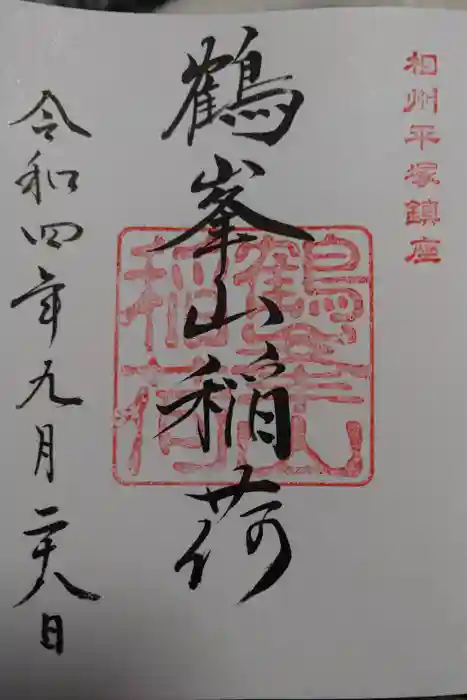 相州平塚鎮座
鶴峯山稲荷
鶴峯山
稲荷
令和四年九月二十八日